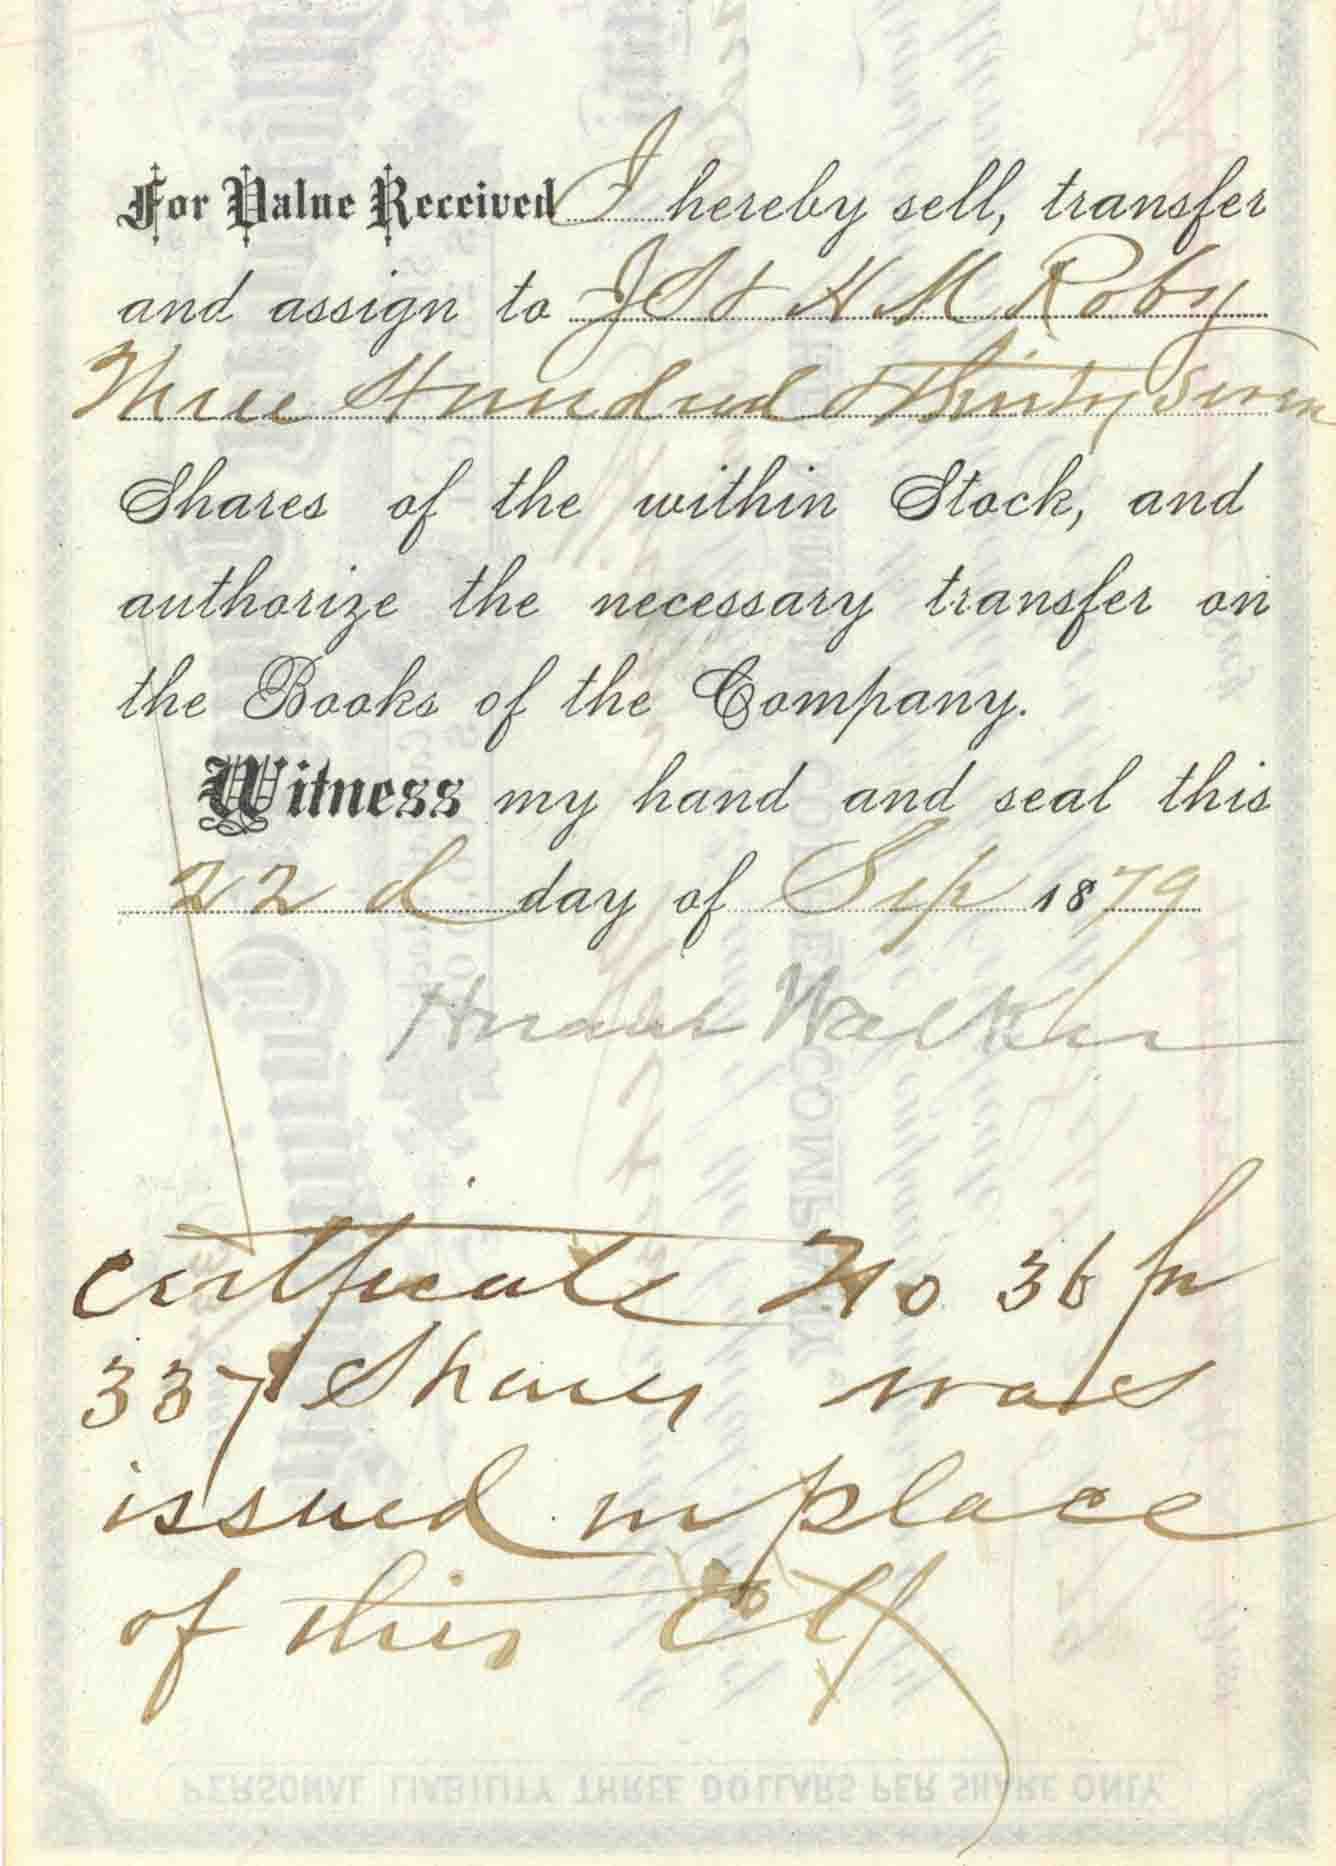 For Value Received I hereby sell, transfer
and assign to J S & H M Roby
Three Hundred & Thirty Seven
Shares of the within Stock, and
authorize the necessary transfer on
the Books of the Company.
Witness my hand and seal this
22 d day of Sep 1879
Walker
Certficate No 36 for
337 Shares was
issued in place
of this Ctf
PERSONAL LIABILITY THREE DOLLARS PER SHARE ONLY.